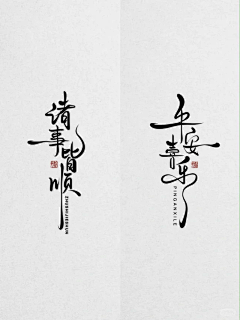 诸事皆顺
ZHUSHIJIESHUN
平安喜乐
PINGANXILE